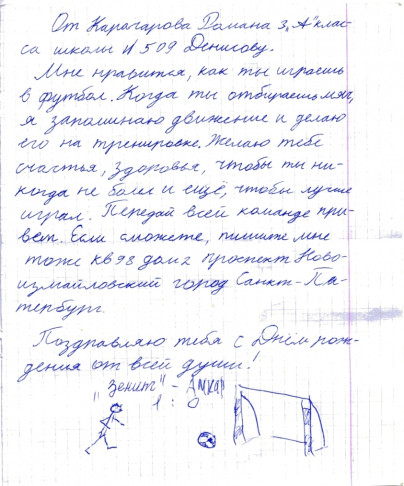 От Карагарова Романа 3 „А" клас-
са школы N 509 Денисову.
Мне нравится, как ты играешь
в футбол. Когда ты отбираешь мяч,
я запоминаю движение и делаю
его на тренировке. Желаю тебе
счастья, здоровья, чтобы ты ни-
когда не болел и ещё, чтобы лучше
играл. Передай всей команде при-
вет. Если сможете, пишите мне
тоже кв 98 дом 2 проспект Ново-
измайловский город Санкт-Пе-
тербург.
Поздравляю тебя с Днём рож-
дения от всей души!
„Зенит" - Амкар
1 : 0